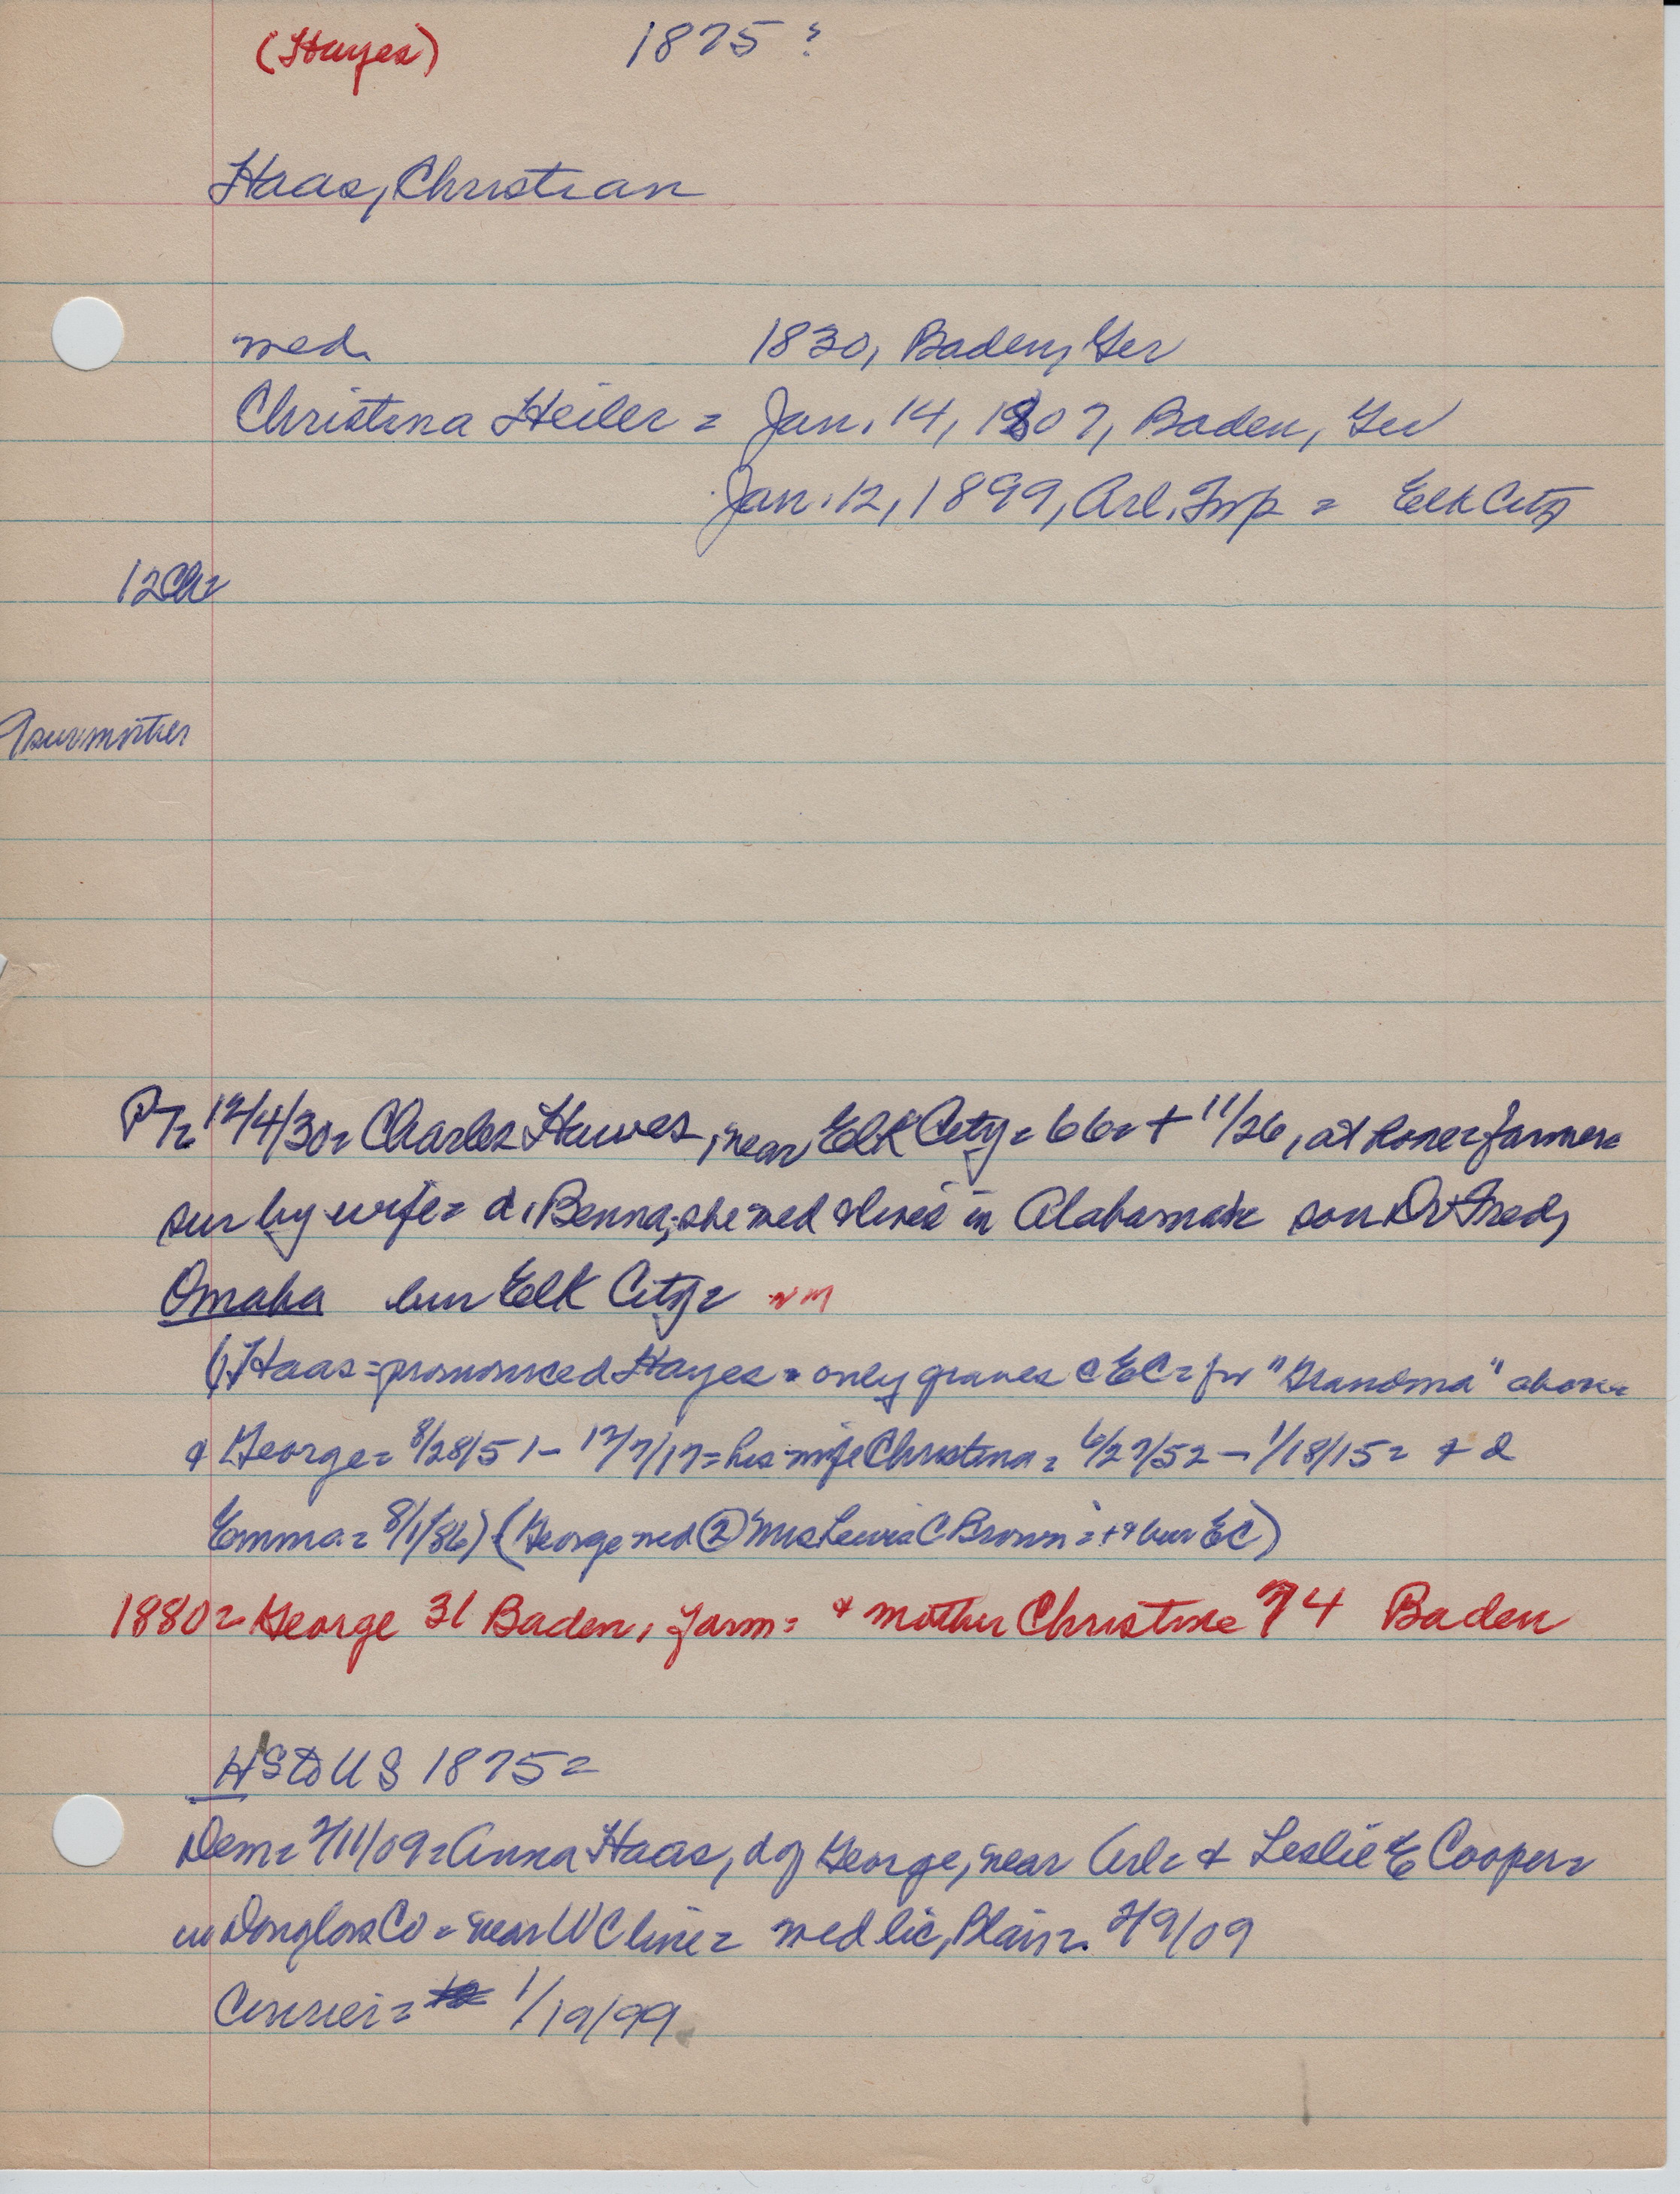 (Hayes) 1875?
Haas, Christian
med. 1830, Baden, Ger
Christina Heiler = Jan. 14, 1807, Baden, Ger
Jan. 12, 1899, Arl. Twp = Elk City
12 Ch=
7 sur mother
PT= 12/4/30= Charles Hawes, near Elk City= 66= + 11/26, at home= farmer=
sur by wife= d, Benna, she med & lives in Alabama= son Dr Fred,
Omaha bur Elk City=
(Haas= pronounced Hayes= only graves c EC= for "Grandma" above
& George= 8/28/51- 12/7/17= his wife Christina= 6/27/52 - 1/18/15= + d
Emma= 8/1/86) (George med ② Mrs Lewis C Brown= +? bur EC)
1880= George 31 Baden, farm= & mother Christine 74 Baden
HS to US 1875=
Dem= 2/11/09= Anna Haas, d of George, near Arl= & Leslie E Cooper=
in Douglas Co= near WC line= med lic, Blair= 2/9/09
Courier= 1/19/99